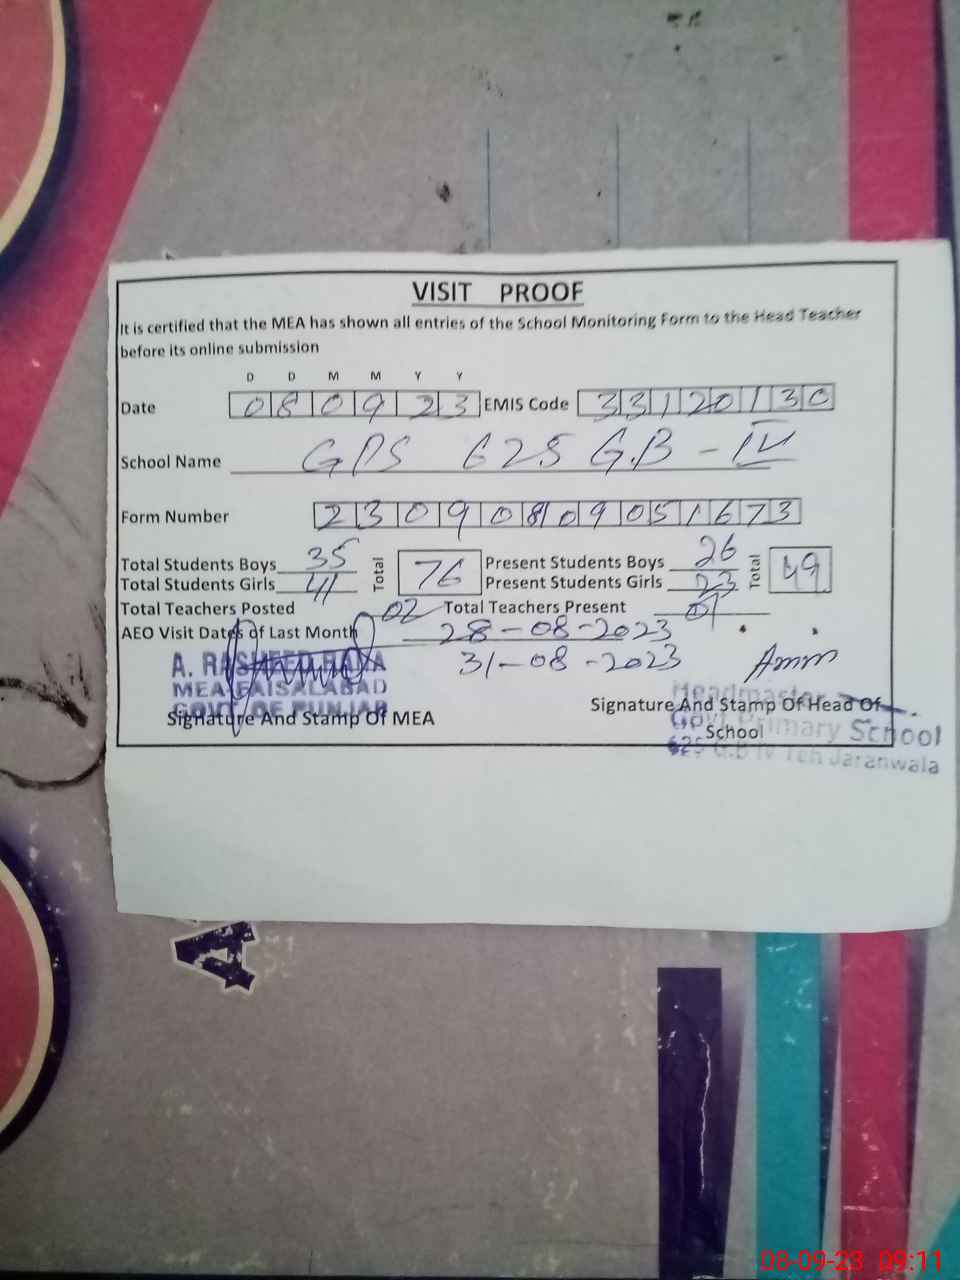 VISIT PROOF
It is certified that the MEA has shown all entries of the School Monitoring Form to the Head Teacher
before its online submission
D D M M Y Y
Date 080923 EMIS Code 33120130
School Name GPS 625 G.B - IV
Form Number 23090809051673
Total Students Boys 35 Total 76 Present Students Boys 26 Total 49
Total Students Girls 41 Present Students Girls 23
Total Teachers Posted 02 Total Teachers Present 01
AEO Visit Dates of Last Month 28-08-2023
31-08-2023
A. RASHEED RANA
MEA FAISALABAD
GOVT. OF PUNJAB
Signature And Stamp Of MEA
Signature And Stamp Of Head Of
School
Headmaster
Govt Primary School
625 G.B IV Teh Jaranwala
08-09-23 09:11